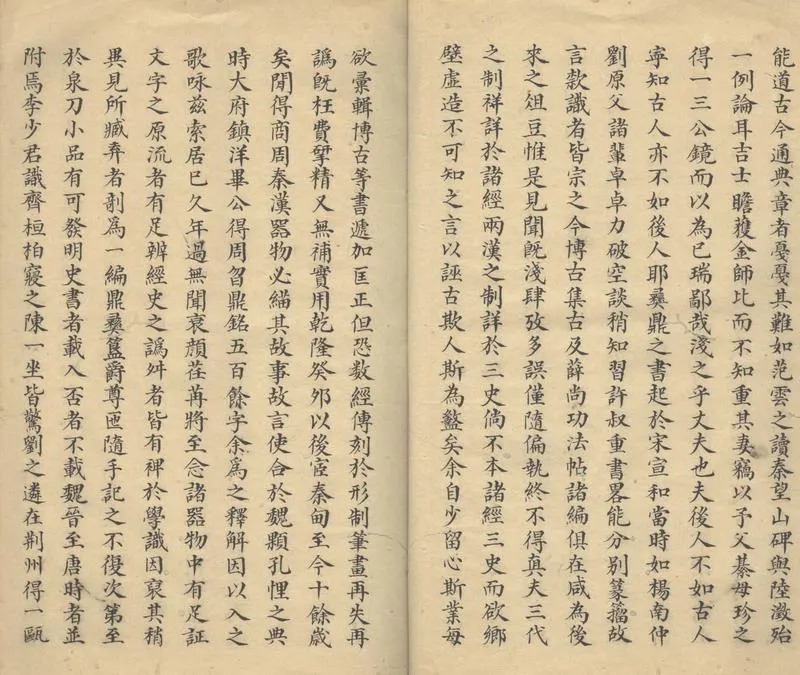 能道古今通典章者戞戞其難如范雲之讀秦望山碑與陸澂殆
一例論耳吉士瞻蒦金師比而不知重其妻竊以予父綦母珍之
得一三公鏡而以為已瑞鄙哉淺之乎丈夫也夫後人不如古人
寧知古人亦不如後人耶彝鼎之書起於宋宣和當時如楊南仲
劉原父諸輩卓卓力破空談稍知習許叔重書畧能分別篆籀故
言款識者皆宗之今博古集古及薛尚功法帖諸編俱在咸為後
來之俎豆惟是見聞旣淺肆攷多誤僅隨偏執終不得真夫三代
之制祥詳於諸經兩漢之制詳於三史倘不本諸經三史而欲鄉
壁虛造不可知之言以誣古欺人斯為盭矣余自少留心斯業每
欲彙輯博古等書遞加匡正但恐数經傳刻於形制筆畫再失再
譌旣枉費揅精又無補實用乾隆癸夘以後宦秦甸至今十餘歲
矣聞得商周秦漢器物必緢其故事故言使合於魏顆孔悝之典
時大府鎮洋畢公得周曶鼎銘五百餘字余爲之釋解因以入之
歌咏兹索居巳久年過無聞衰顔荏苒將至念諸器物中有足証
文字之原流者有足辨經史之譌舛者皆有裨於學識因裒其稍
異見所臧弆者剬爲一編鼎彝簠爵尊匜隨手記之不復次第至
於泉刀小品有可發明史書者載入否者不載魏晉至唐時者並
附焉李少君識齊桓柏寢之陳一坐皆驚劉之遴在荆州得一甌